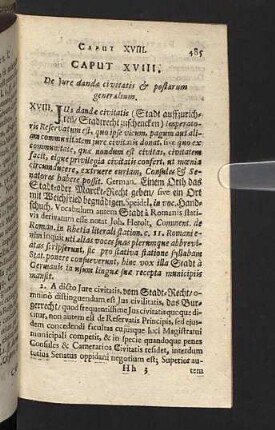 CAPUT XVIII. 485
CAPUT XVIII.
De Jure dandæ civitatis & postarum
generalium.
XVIII. Jus dandæ civitatis (Stadt auffzurich-
ten/ Stadtrecht zuschencken) Imperato-
ris Reservatum est, quo ipse vicum, pagum aut ali-
am communitatem jure civitatis donat, sive quo ex
communitate, quæ nondum est civitas, civitatem
facit, eique privilegia civitatis confert, ut mœnia
circumducere, extruere turrim, Consules & Se-
natores habere possit. German. Einem Orth das
Stadt-oder Marckt-Recht geben/ sive ein Ort
mit Weichfried begnädigen. Speidel, in voc. Hand-
schuch. Vocabulum autem Stadt à Romanis stati-
vis derivatum esse notat Joh. Herolt, Comment. de
Roman. in Rhetia literali station. c. 11. Romanis e-
nim inquit uti alias voces suas plerumque abbrevi-
atas scripserunt, sic pro stativa statione syllabam
Stat. ponere consueverunt, hinc vox illa Stadt à
Germanis in usum linguæ suæ recepta municipiis
mansit.
2. A dicto Jure civitatis, vom Stadt-Recht/ o-
mninò distinguendum est Jus civilitatis, das Bur-
gerrecht/ quod frequentissimè Jus civitatis quoque di-
citur, non autem est de Reservatis Principis, sed ejus-
dem concedendi facultas cujusque loci Magistratui
municipali competit, & in specie quandoque penes
Consules & Camerarios Civitatis residet, interdum
totius Senatus oppidani negotium est; Superior au-
Hh 3 tem